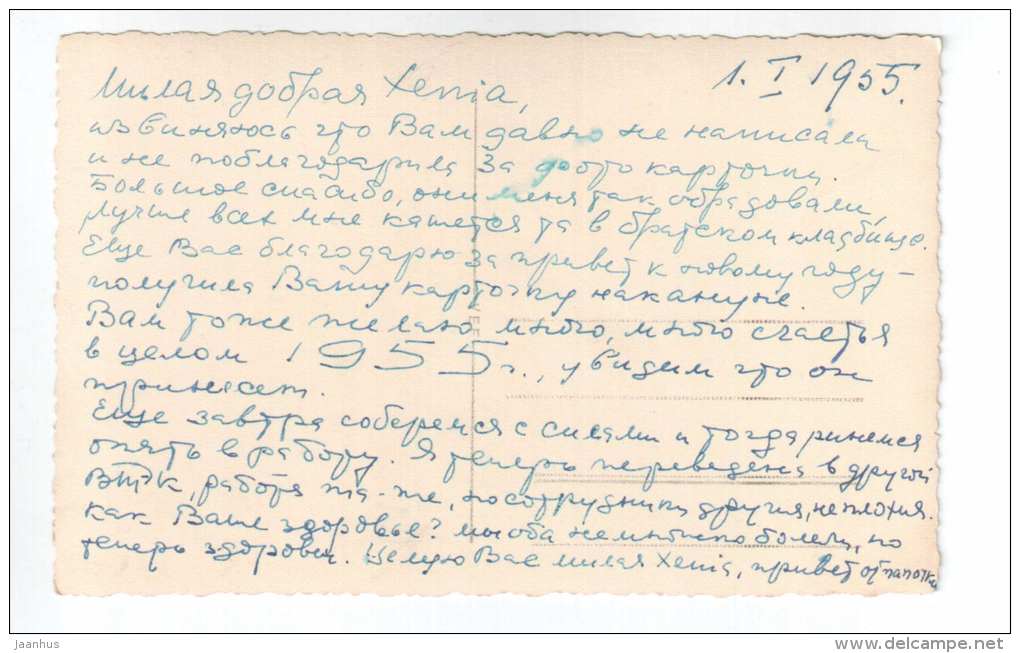 1. I 1955.
Милая добрая Xenia,
извиняюсь что Вам давно не написала
и не поблагодарила за фото карточки.
Большое спасибо, они меня так обрадовали,
лучше всех мне кажется та в братском кладбище.
Еще Вас благодарю за привет к новому году –
получила Вашу карточку накануне.
Вам тоже желаю много, много счастья
в целом 1955 г., увидим что он
принесет.
Еще завтра соберемся с силами и тогда ринемся
опять в работу. Я теперь переведена в другой
ВТЭК, работа та-же, но сотрудники другия, не плохия.
Как Ваше здоровье? мы оба немножко болели, но
теперь здоровы. Целую Вас милая Xenia, привет от папочки
jaanhus
www.delcampe.net